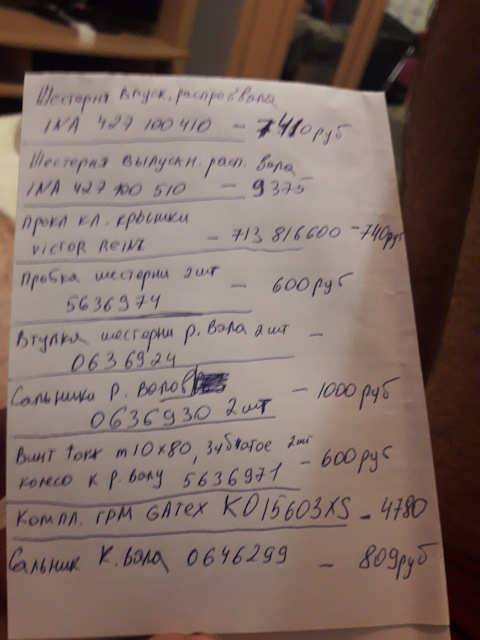 Шесторня впуск. распредвала
INA 427 100 410 — 7410 руб
Шесторня выпускн. расп. вала
INA 427 100 510 — 9375
Прокл кл. крышки
VICTOR REINZ — 713 816600 — 740 руб
Пробка шесторни 2 шт
5636974 — 600 руб
Втулка шесторни р. вала 2 шт —
0636924
Сальники р. валов — 1000 руб
0636930 2 шт
Винт Torx m10x80, зубчатое 2 шт
колесо к р. валу 5636971 — 600 руб
Компл. ГРМ GATEX KD15603XS — 4780
Сальник к. вала 0646299 — 809 руб